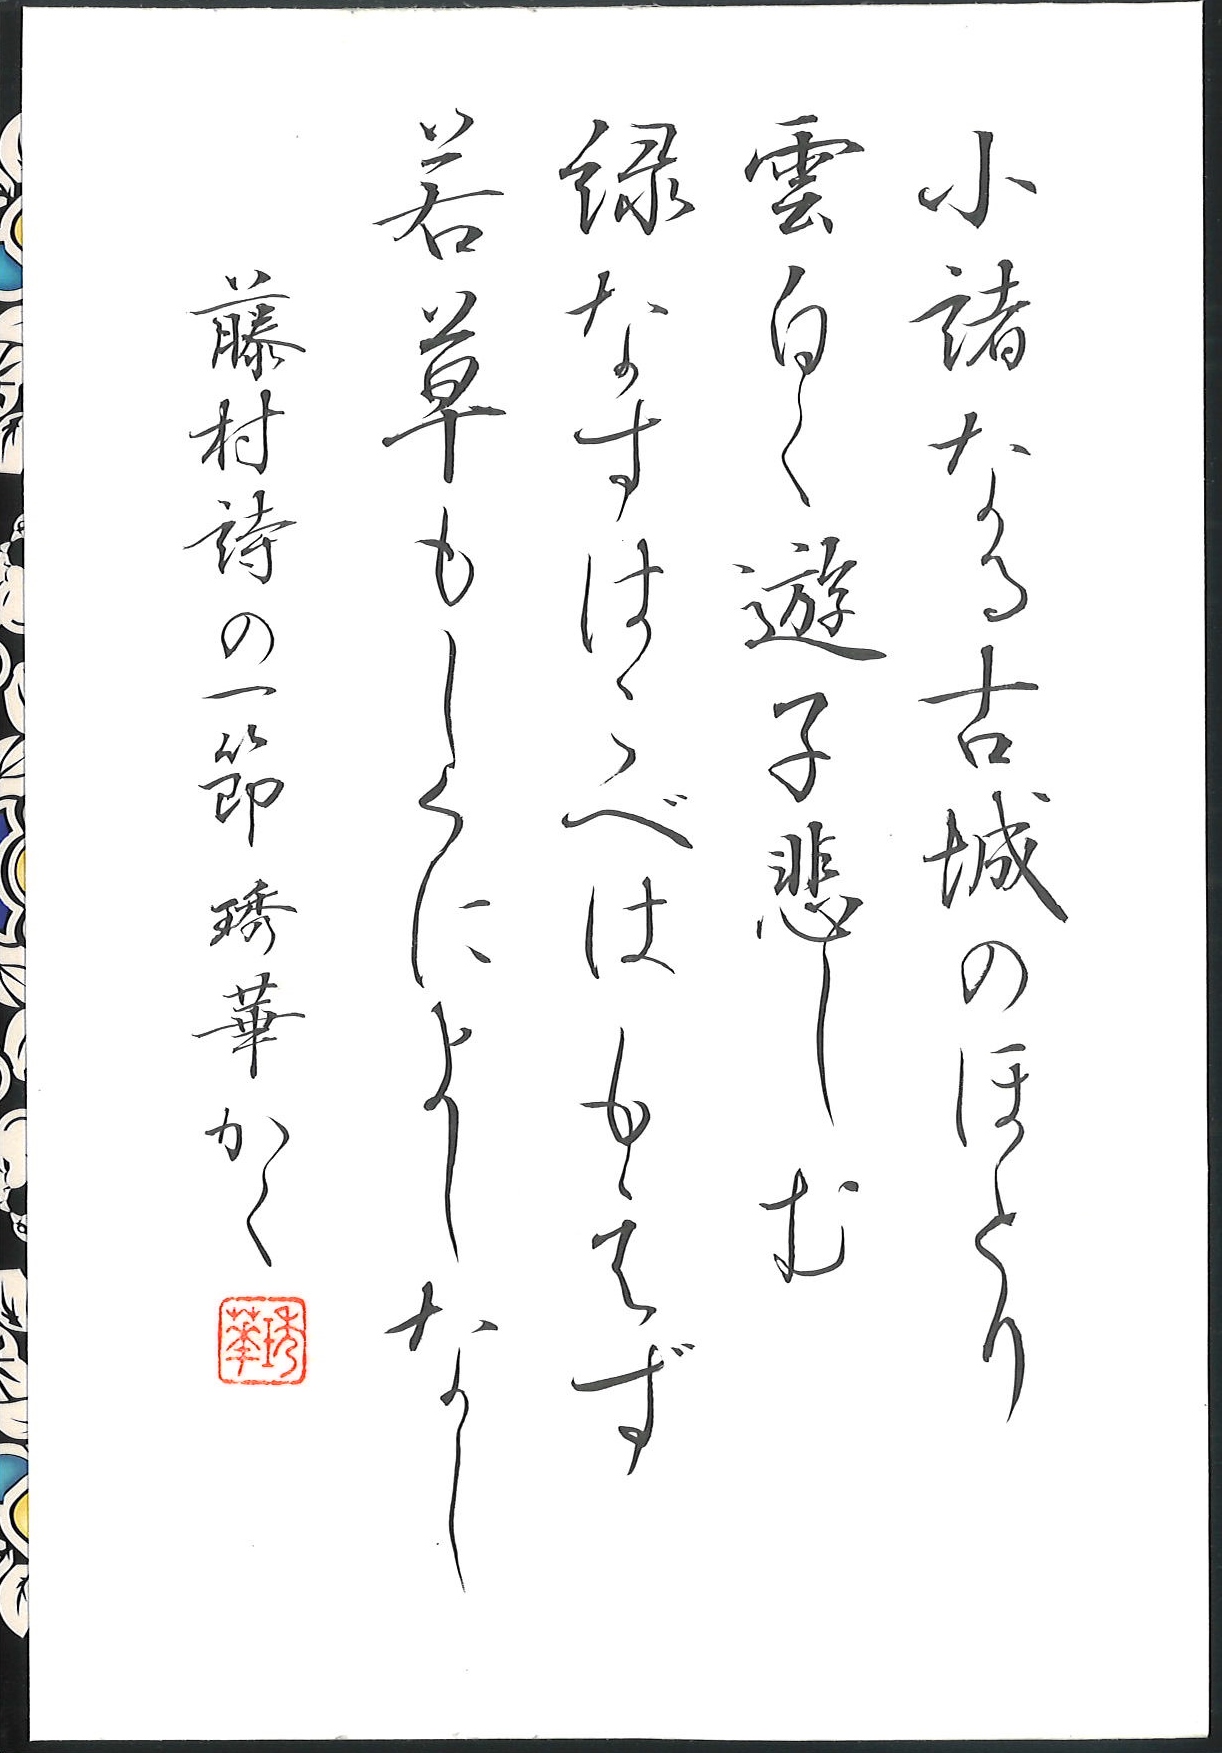 小諸なる古城のほとり
雲白く遊子悲しむ
緑なすはこべはもえず
若草もしくによしなし
藤村詩の一節 琇華かく
琇華